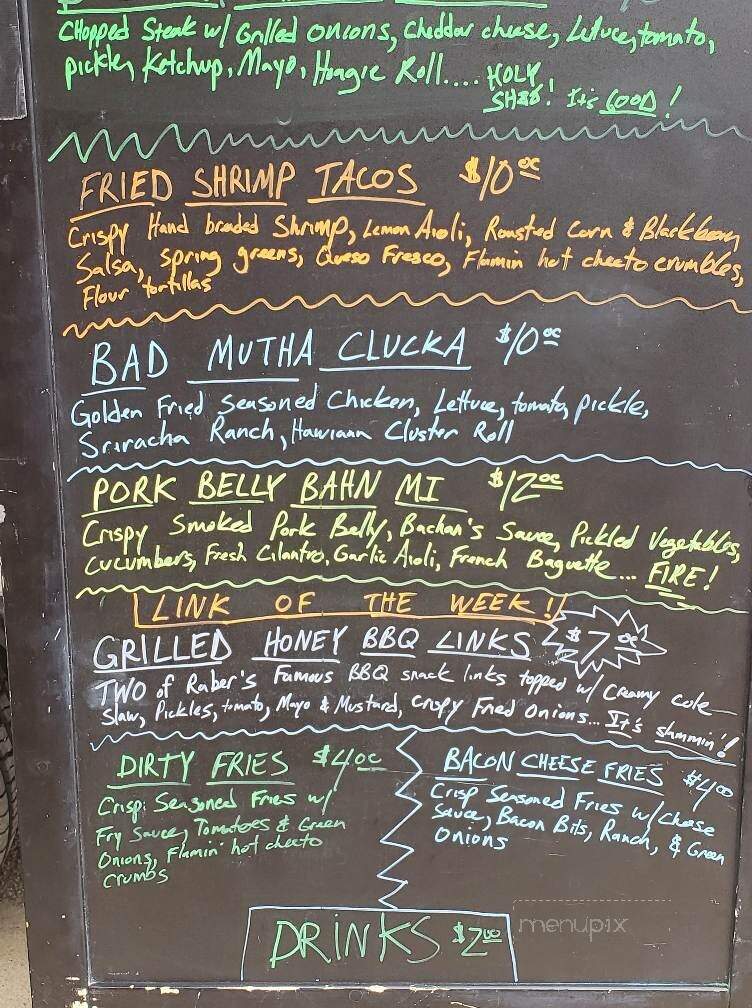 Chopped Steak w/ Grilled onions, Cheddar cheese, Lettuce, tomato,
pickle, Ketchup, Mayo, Hoagie Roll.... HOLY
SH@$! It's GOOD!
FRIED SHRIMP TACOS $10.00
Crispy Hand breaded Shrimp, Lemon Aioli, Roasted Corn & Blackbean
Salsa, spring greens, Queso Fresco, Flamin hot cheeto crumbles,
Flour tortillas
BAD MUTHA CLUCKA $10.00
Golden Fried Seasoned Chicken, Lettuce, tomato, pickle,
Sriracha Ranch, Hawiaan Cluster Roll
PORK BELLY BAHN MI $12.00
Crispy Smoked Pork Belly, Bachan's Sauce, Pickled Vegetables,
Cucumbers, Fresh Cilantro, Garlic Aioli, French Baguette... FIRE!
LINK OF THE WEEK!
GRILLED HONEY BBQ LINKS $7.00
TWO of Raber's Famous BBQ snack links topped w/ Creamy cole
slaw, Pickles, tomato, Mayo & Mustard, crispy Fried Onions... It's slammin'!
DIRTY FRIES $4.00
Crisp Seasoned Fries w/
Fry Sauce, Tomatoes & Green
Onions, Flamin' hot cheeto
Crumbs
BACON CHEESE FRIES $4.00
Crisp Seasoned Fries w/ Cheese
Sauce, Bacon Bits, Ranch, & Green
Onions
DRINKS $2.00
menupix